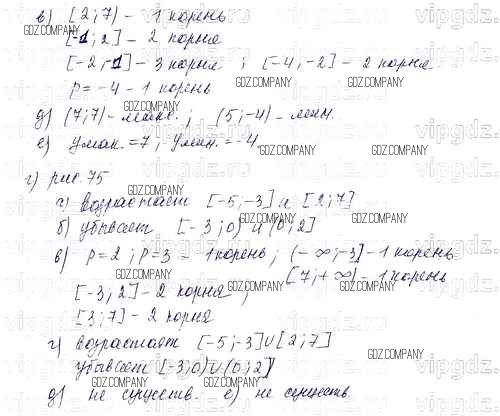 в) [2; 7) - 1 корень
[-1; 2] - 2 корня
[-2; -1] - 3 корня ; [-4, -2] - 2 корня
p = -4 - 1 корень
д) (7; 7) - макс. ; (5; -4) - мин.
е) y мак. = 7 ; y мин. = -4.
г) рис. 75
а) возрастает [-5; -3] и [2; 7]
б) убывает [-3; 0) и (0; 2]
в) p = 2 ; p = 3 - 1 корень ; (-∞; -3] - 1 корень
[7; +∞) - 1 корень
[-3; 2] - 2 корня ;
[3; 7] - 2 корня
г) возрастает [-5; -3] U [2; 7]
убывает [-3; 0) U (0; 2]
д) не существ. е) не существ.